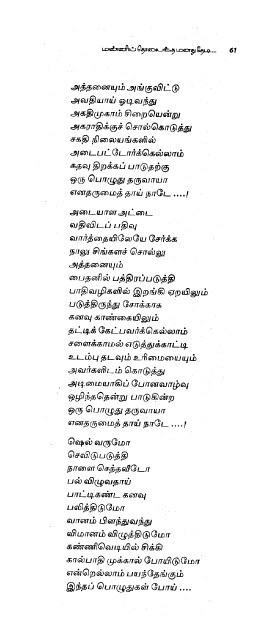 மண்ணிற் தொலைந்த மனது தேடி... 61
அத்தனையும் அங்குவிட்டு
அவதியாய் ஓடிவந்து
அகதிமுகாம் சிறையென்று
அகராதிக்குச் சொல்கொடுத்து
சகதி நிலையங்களில்
அடைபட்டோர்க்கெல்லாம்
கதவு திறக்கப் பாடுதற்கு
ஒரு பொழுது தருவாயா
எனதருமைத் தாய் நாடே ....!
அடையாள அட்டை
வதிவிடப் பதிவு
வார்த்தையிலேயே சேர்க்க
நாலு சிங்களச் சொல்லு
அத்தனையும்
பைதனில் பத்திரப்படுத்தி
பாதிவழிகளில் இறங்கி ஏறயிலும்
படுத்திருந்து சோக்காக
கனவு காண்கையிலும்
தட்டிக் கேட்பவர்க்கெல்லாம்
சளைக்காமல் எடுத்துக்காட்டி
உடம்பு தடவும் உரிமையையும்
அவர்களிடம் கொடுத்து
அடிமையாகிப் போனவாழ்வு
ஒழிந்ததென்று பாடுகின்ற
ஒரு பொழுது தருவாயா
எனதருமைத் தாய் நாடே ....!
ஷெல் வருமோ
செவிடுபடுத்தி
நாளை செத்தவீடோ
பல் விழுவதாய்
பாட்டிகண்ட கனவு
பலித்திடுமோ
வானம் பிளந்துவந்து
விமானம் விழுத்திடுமோ
கண்ணிவெடியில் சிக்கி
கால்பாதி முக்கால் போயிடுமோ
என்றெல்லாம் பயந்தேங்கும்
இந்தப் பொழுதுகள் போய் ....